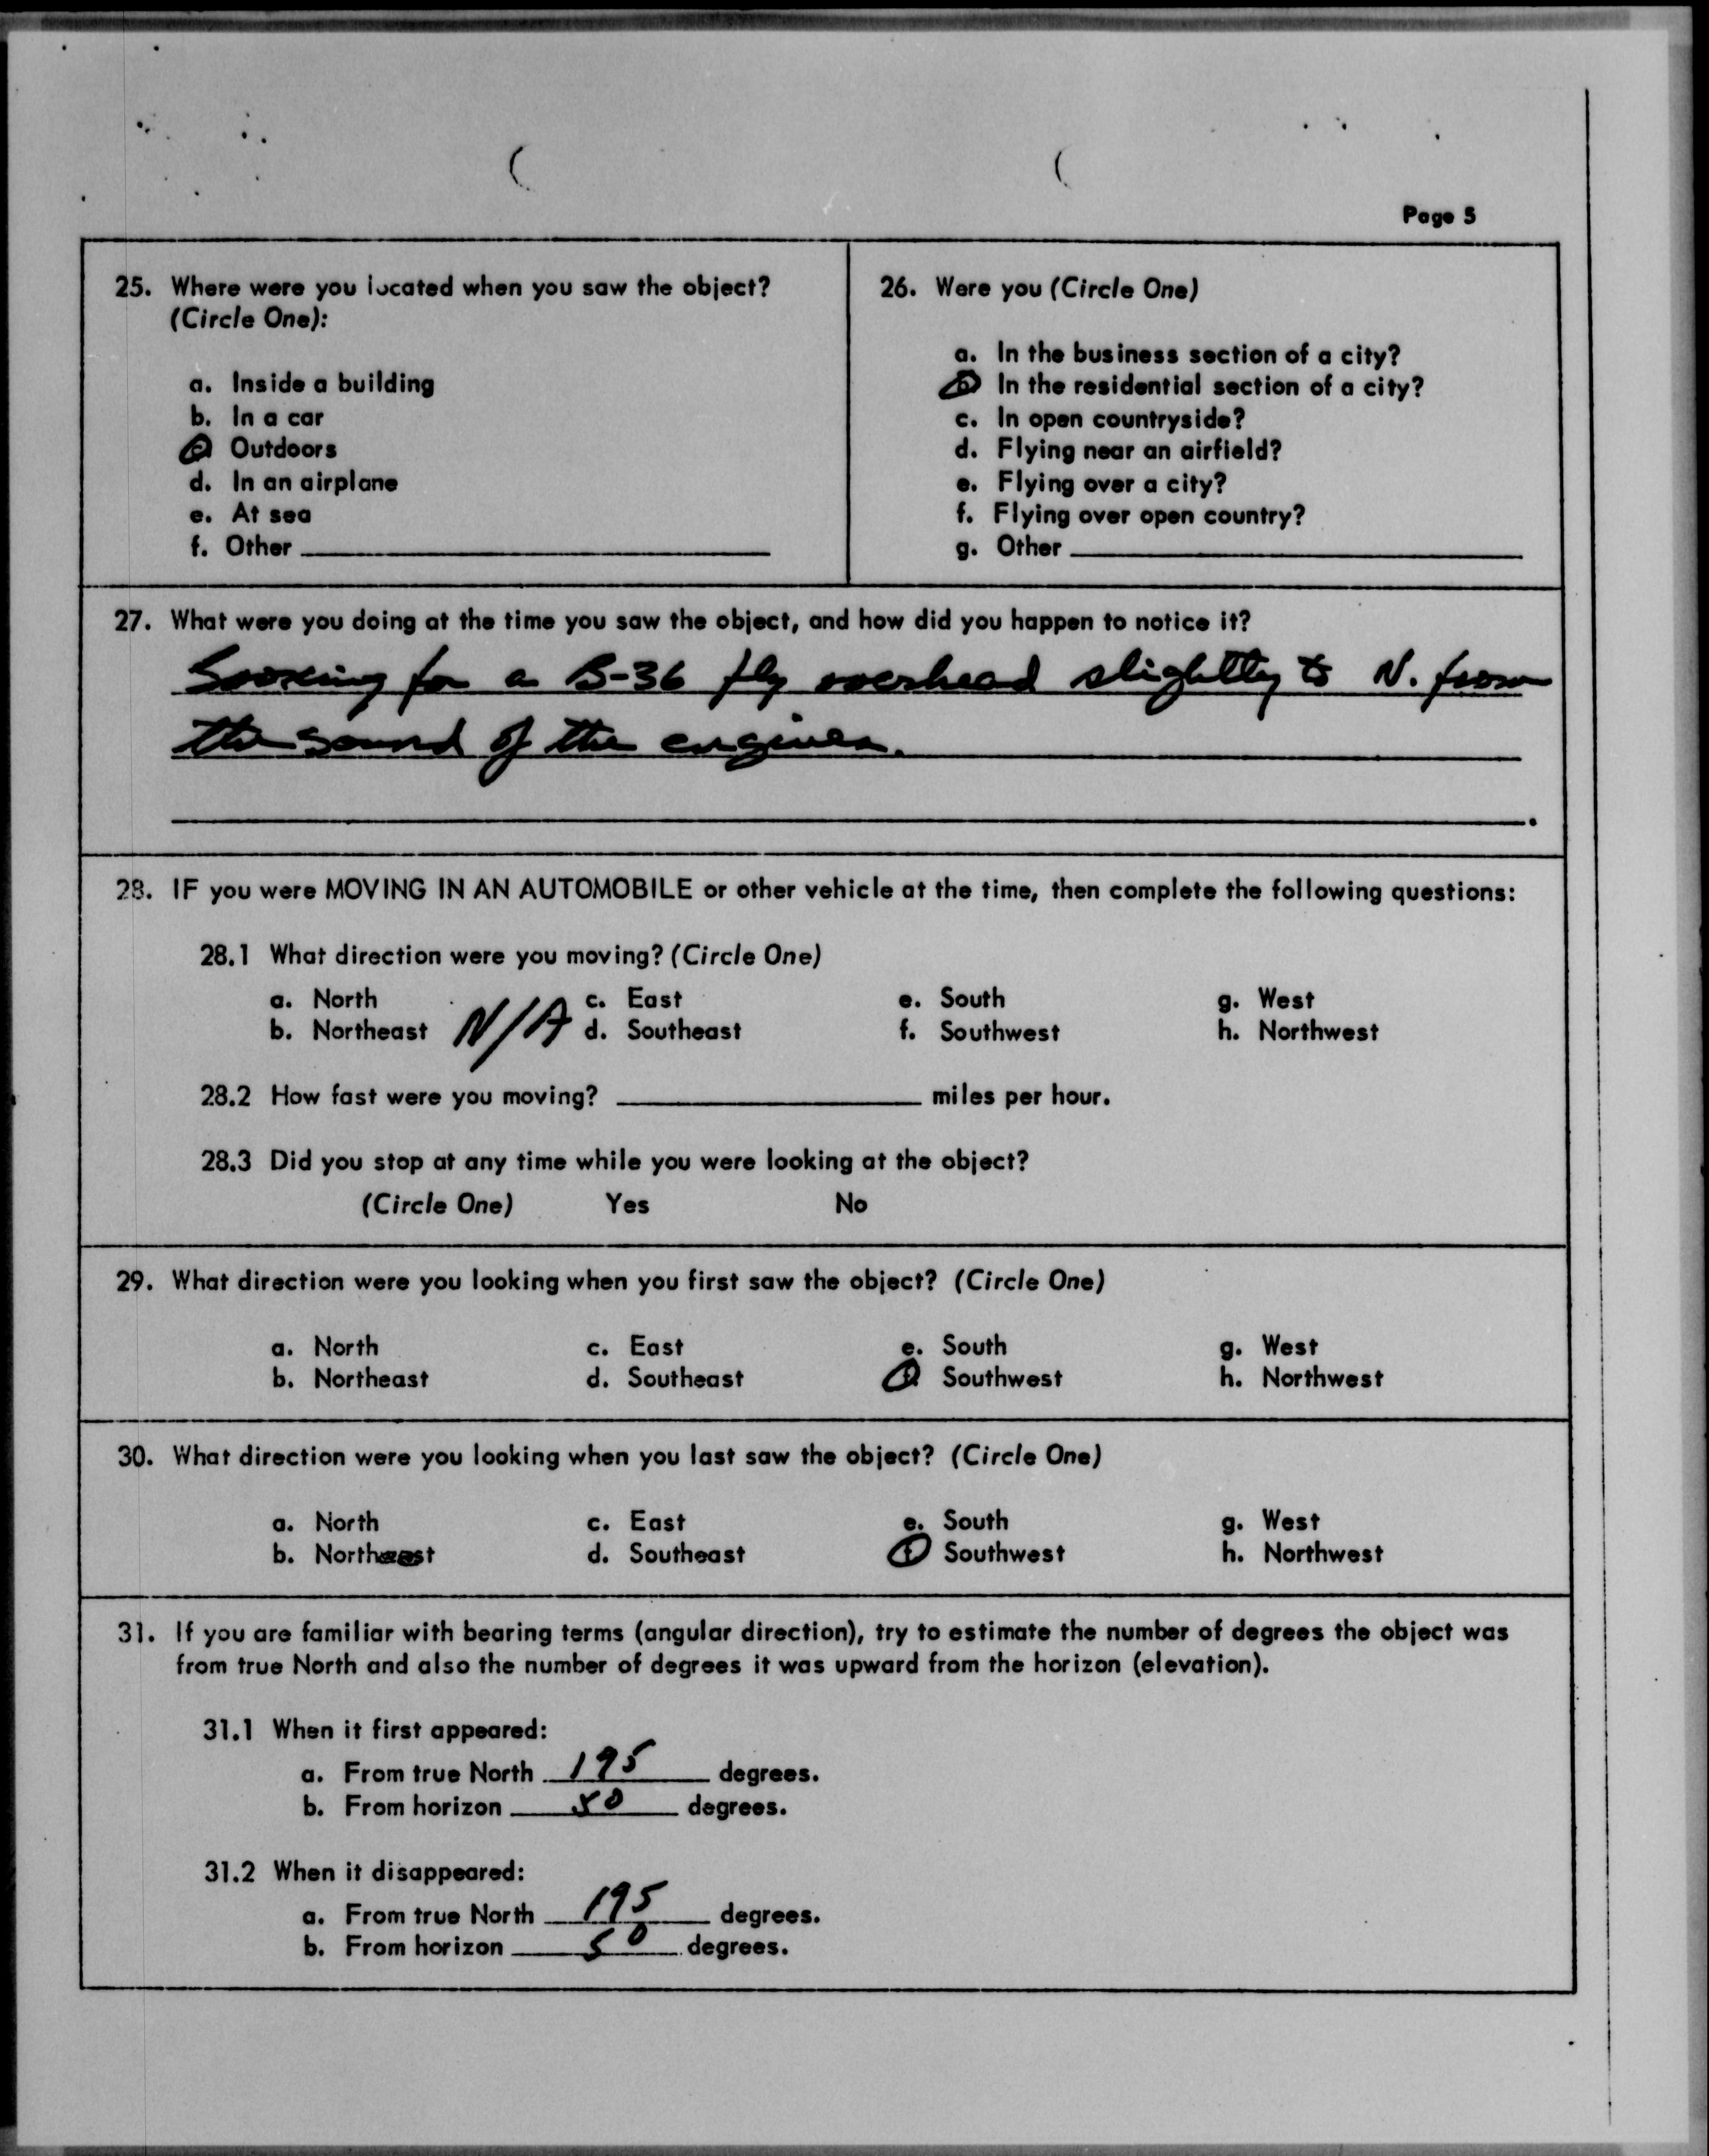 Page 5
25. Where were you located when you saw the object?
(Circle One):
a. Inside a building
b. In a car
c. Outdoors
d. In an airplane
e. At sea
f. Other
26. Were you (Circle One)
a. In the business section of a city?
b. In the residential section of a city?
c. In open countryside?
d. Flying near an airfield?
e. Flying over a city?
f. Flying over open country?
g. Other
27. What were you doing at the time you saw the object, and how did you happen to notice it?
Looking for a B-36 fly overhead slightly to N. from
the sound of the engines.
28. IF you were MOVING IN AN AUTOMOBILE or other vehicle at the time, then complete the following questions:
28.1 What direction were you moving? (Circle One)
a. North c. East e. South g. West
b. Northeast N/A d. Southeast f. Southwest h. Northwest
28.2 How fast were you moving? miles per hour.
28.3 Did you stop at any time while you were looking at the object?
(Circle One) Yes No
29. What direction were you looking when you first saw the object? (Circle One)
a. North c. East e. South g. West
b. Northeast d. Southeast f. Southwest h. Northwest
30. What direction were you looking when you last saw the object? (Circle One)
a. North c. East e. South g. West
b. Northeast d. Southeast f. Southwest h. Northwest
31. If you are familiar with bearing terms (angular direction), try to estimate the number of degrees the object was
from true North and also the number of degrees it was upward from the horizon (elevation).
31.1 When it first appeared:
a. From true North 195 degrees.
b. From horizon 50 degrees.
31.2 When it disappeared:
a. From true North 195 degrees.
b. From horizon 50 degrees.